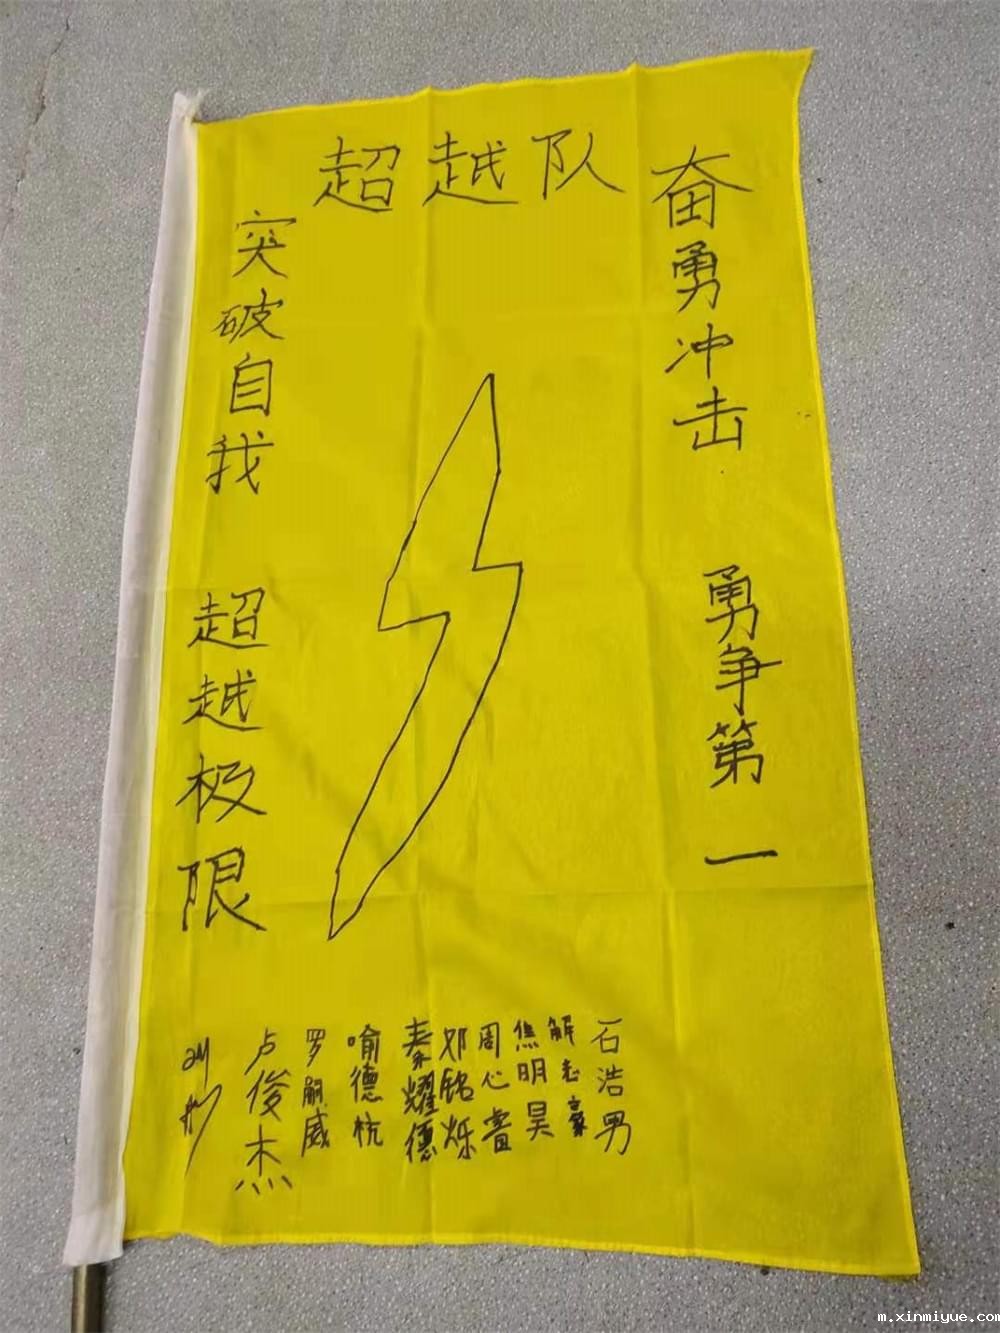 超越队
奋勇冲击 勇争第一
突破自我 超越极限
石浩男
解志豪
焦明昊
周心蕾
邓铭烁
秦耀德
喻德杭
罗嗣威
卢俊杰
m.xinmiyue.com